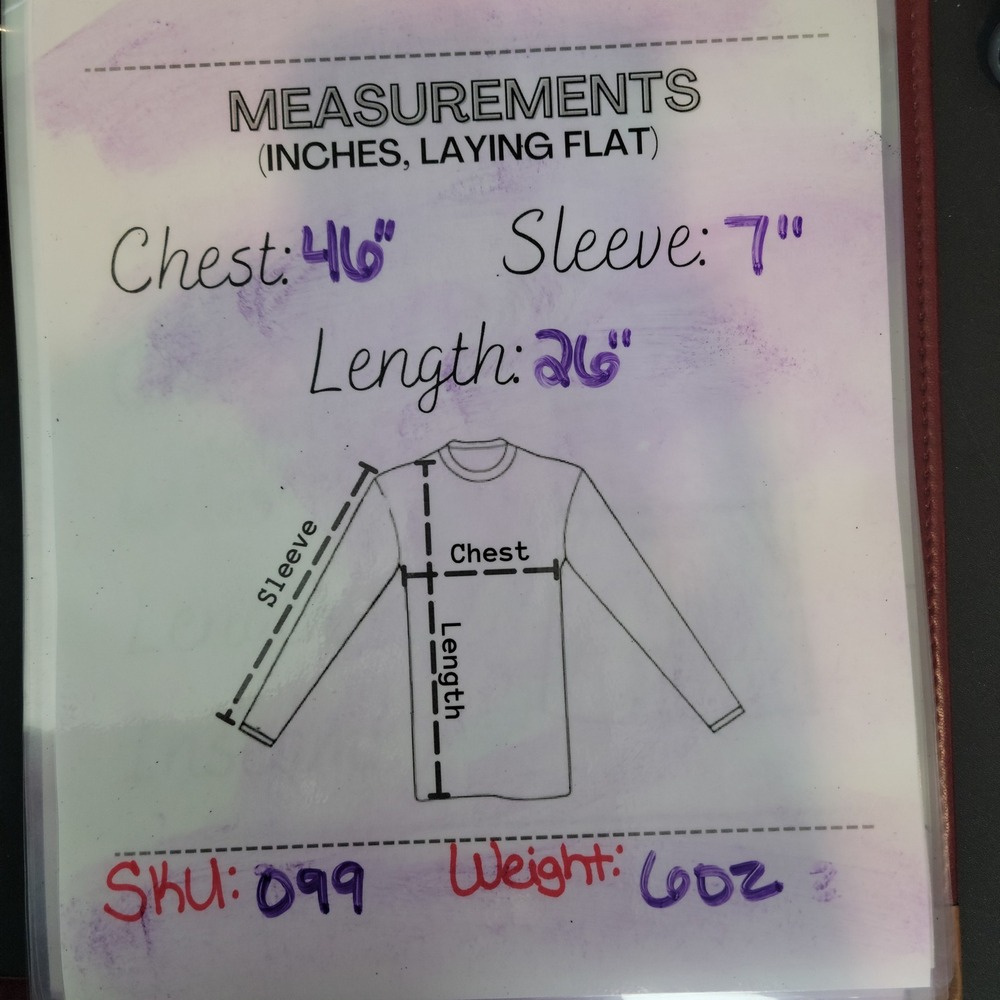 MEASUREMENTS
(INCHES, LAYING FLAT)
Chest: 46" Sleeve: 7"
Length: 26"
Sleeve
Chest
Length
SKU: 099 Weight: 6oz